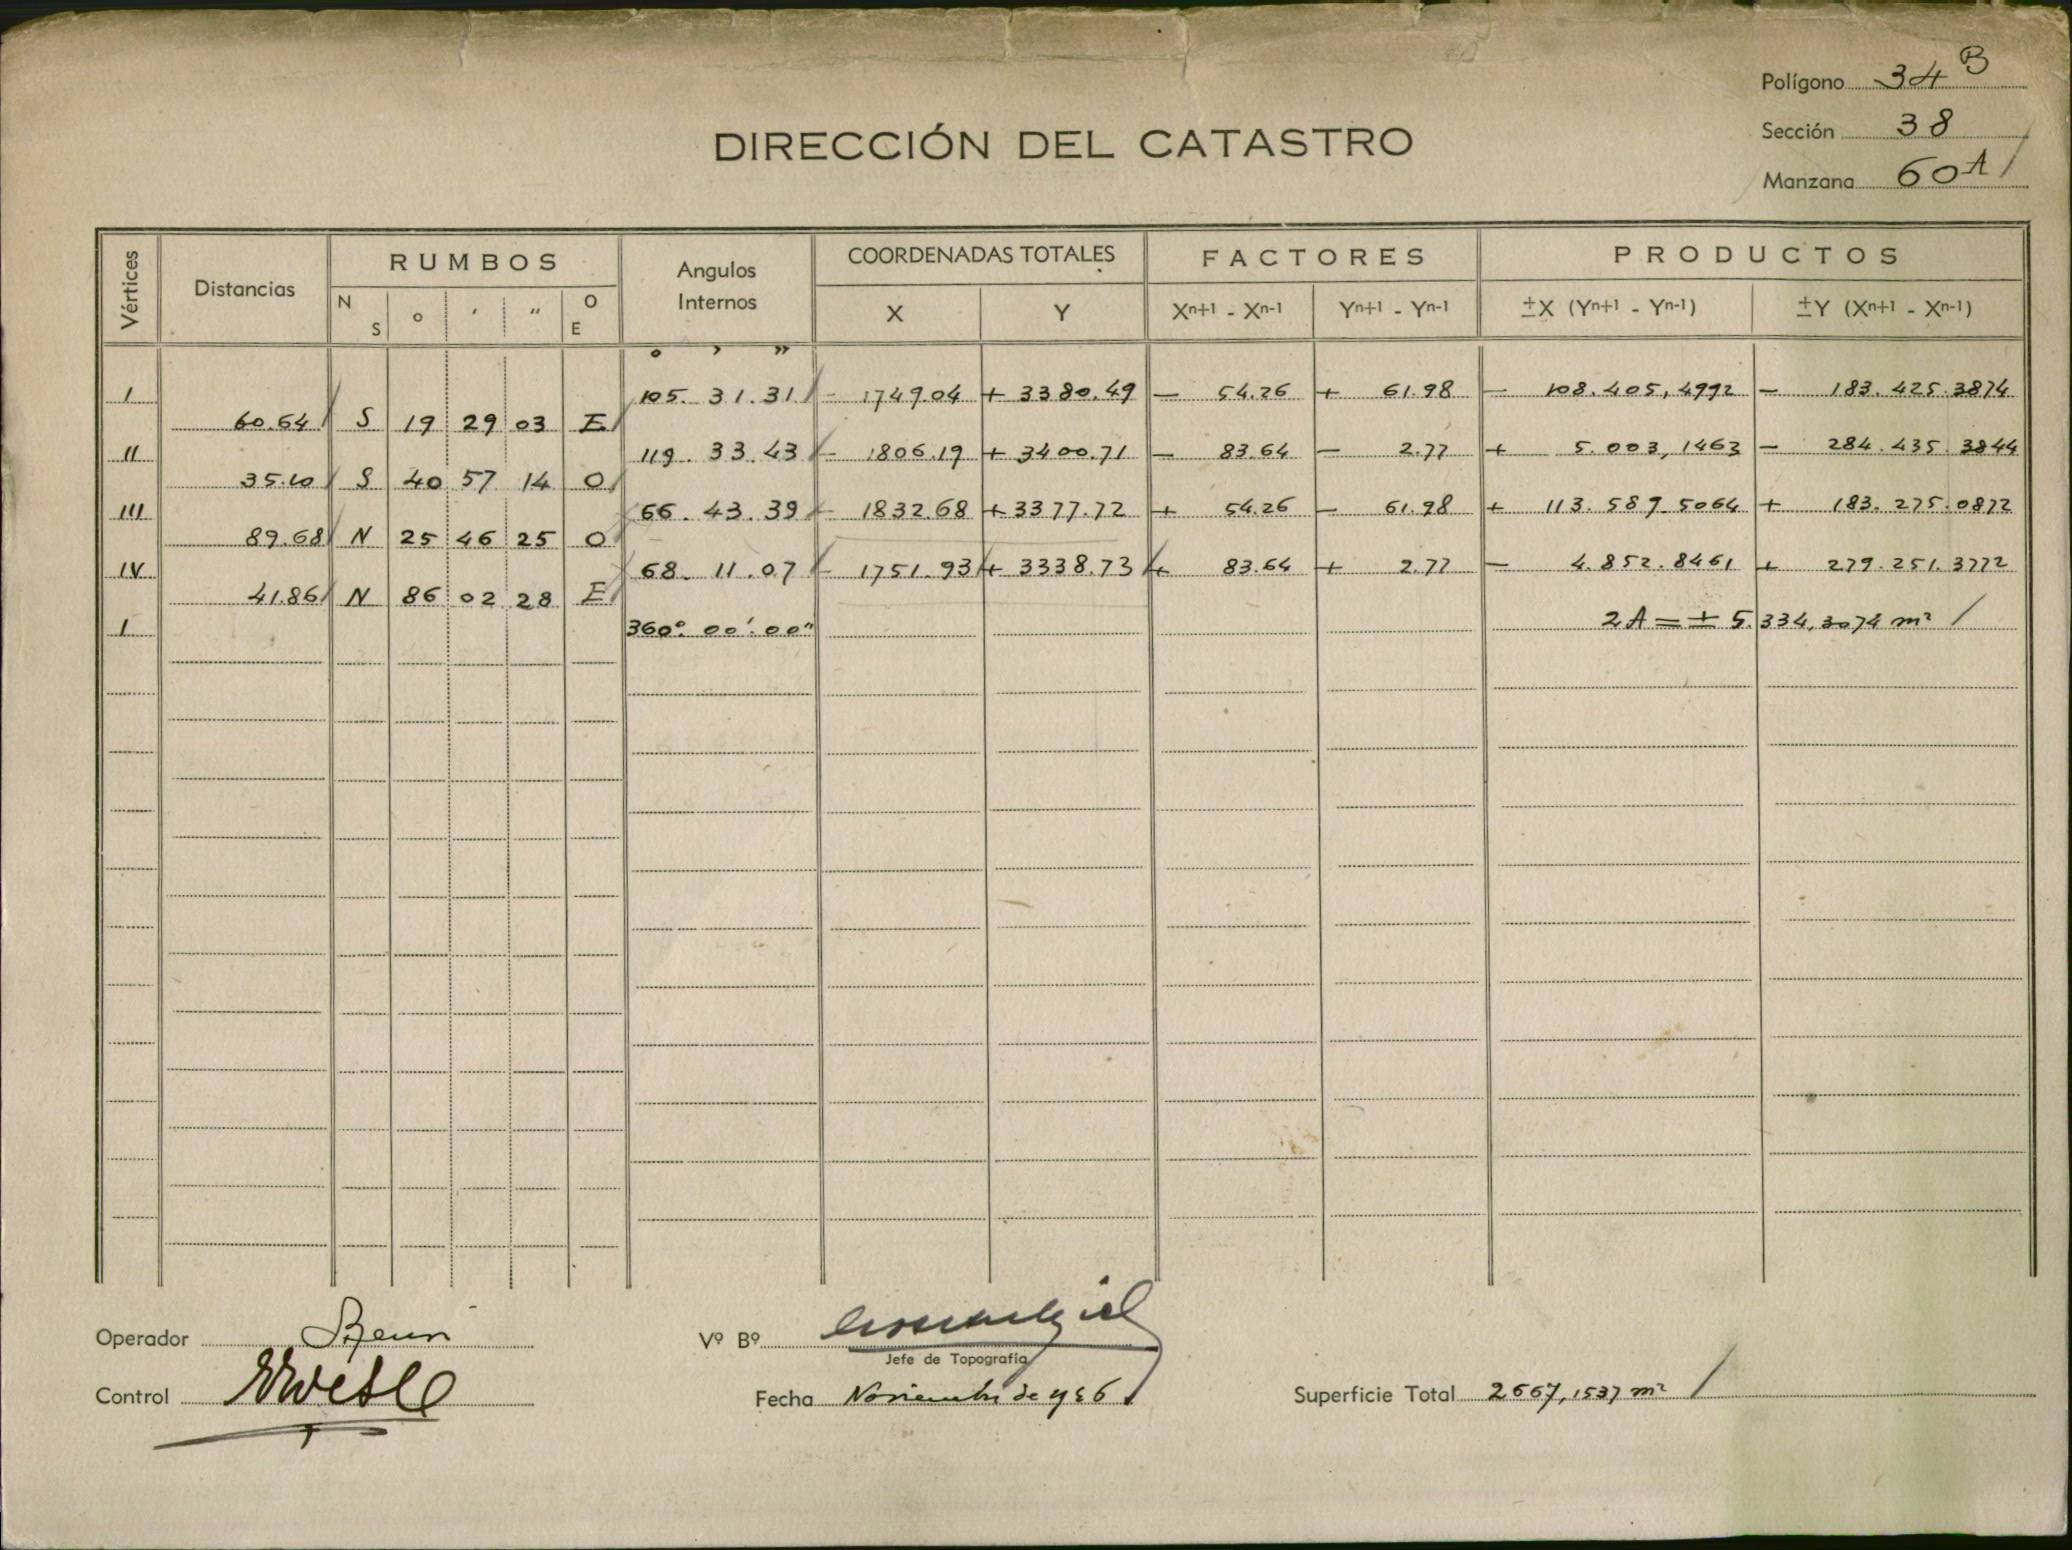 Polígono 34 B
Sección 38
Manzana 60 A
DIRECCIÓN DEL CATASTRO
Vértices Distancias RUMBOS Angulos Internos COORDENADAS TOTALES FACTORES PRODUCTOS
N S o ' " O E X Y Xn+1 - Xn-1 Yn+1 - Yn-1 ±X (Yn+1 - Yn-1) ±Y (Xn+1 - Xn-1)
o ' "
I 105. 31. 31 - 1749.04 + 3380.49 - 54.26 + 61.98 - 108.405,4992 - 183.425.3874
60.64 S 19 29 03 E
II 119. 33. 43 - 1806.19 + 3400.71 - 83.64 - 2.77 + 5.003,1463 - 284.435.3844
35.10 S 40 57 14 O
III 66. 43. 39 - 1832.68 + 3377.72 + 54.26 - 61.98 + 113.589.5064 + 183.275.0872
89.68 N 25 46 25 O
IV 68. 11. 07 - 1751.93 + 3338.73 + 83.64 + 2.77 - 4.852.8461 + 279.251.3772
41.86 N 86 02 28 E
I 360°. 00'. 00" 2A = ± 5.334,3074 m²
Operador
Vº Bº
Jefe de Topografía
Control
Fecha Noviembre de 1936
Superficie Total 2667,1537 m²